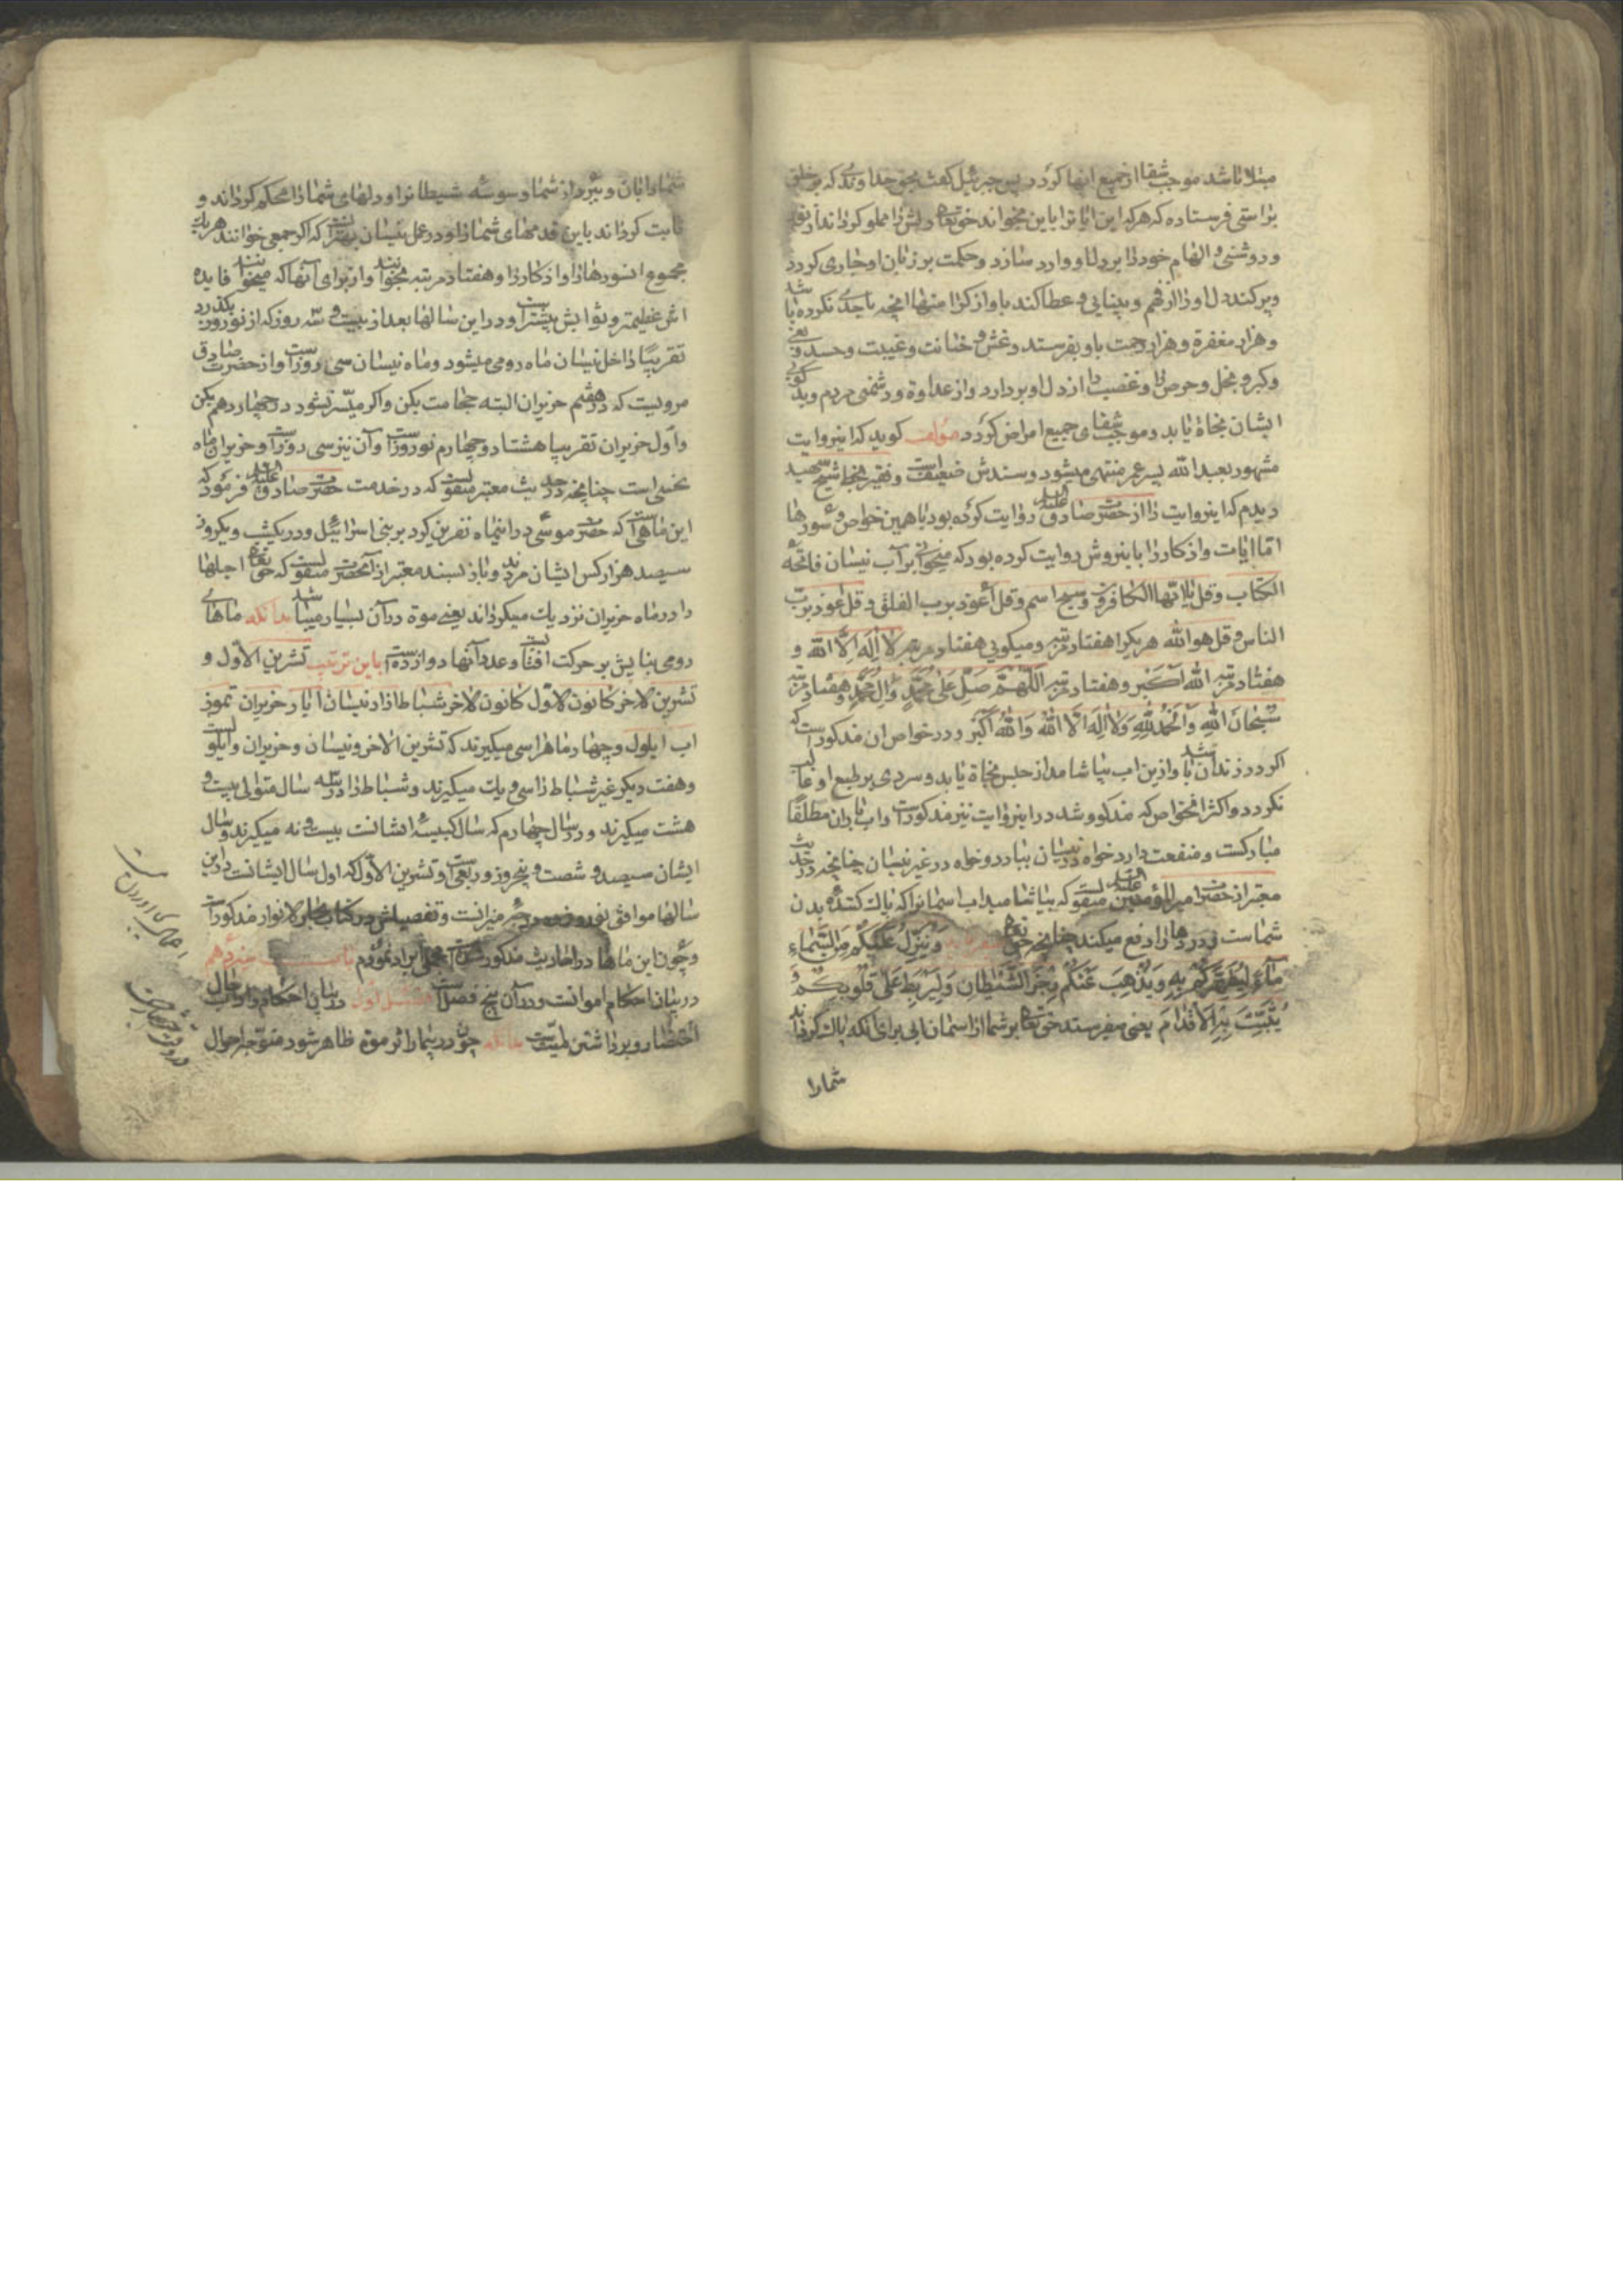 مبتلا باشد موجب شفا از جمیع انها کردد پس جبرئیل کفت بحق خداوندی که بر خلق
براستی فرستاده که هر که این ایاترا باین بخواند حق تعالی دلش را مملو کرداند از نور
و روشنی و الهام خود را بر دل او وارد سازد و حکمت بر زبان او جاری کردد
و پر کند دل او را از فهم و بینایی و عطا کند باو از کرامتها انچه باحدی نکرده باشد
و هزار مغفرة و هزار رحمت باو بفرستد و غش و خیانت و غیبت و حسد و بغی
و کبر و بخل و حرص را و غضب را از دل او بردارد و از عداوة و دشمنی مردم و بدکویی
ایشان نجاة یابد و موجب شفای جمیع امراض کردد مولف کوید که اینروایت
مشهور بعبد الله پسر عمر منتهی میشود و سندش ضعیفست و فقیر بخط شیخ شهید
دیدم که اینروایت را از حضرت صادق علیه السلام روایت کرده بود با همین خواص و سورها
اما ایات و اذکار را باینروش روایت کرده بود که میخوانی بر آب نیسان فاتحه
الکتاب و قل یا ایها الکافرون و سبح اسم و قل اعوذ برب الفلق و قل اعوذ برب
الناس و قل هو الله هر یکرا هفتاد مرتبه و میکویی هفتاد مرتبه لا اله الا الله و
هفتاد مرتبه الله اکبر و هفتاد مرتبه اللهم صل علی محمد و ال محمد و هفتاد مرتبه
سبحان الله و الحمد لله و لا اله الا الله و الله اکبر و در خواص ان مذکور است که
اکر در زندان باشد و ازین اب بیاشامد از حبس نجاة یابد و سردی بر طبع او غالب
نکردد و اکثر انخواص که مذکور شد در اینروایت نیز مذکور است و اب باران مطلقا
مبارکست و منفعت دارد خواه در نیسان ببارد و خواه در غیر نیسان چنانچه در حدیث
معتبر از حضرت امیر المؤمنین علیه السلام منقولست که بیاشامید اب اسمانرا که پاک کننده بدن
شماست و دردها را دفع میکند چنانچه حق تعالی میفرماید وَیُنَزِّلُ عَلَیْکُمْ مِنَ السَّمَاءِ
مَاءً لِیُطَهِّرَکُمْ بِهِ وَیُذْهِبَ عَنْکُمْ رِجْزَ الشَّیْطَانِ وَلِیَرْبِطَ عَلَی قُلُوبِکُمْ وَ
یُثَبِّتَ بِهِ الْاَقْدَامَ یعنی میفرستد حق تعالی بر شما از اسمان ابی برای انکه پاک کرداند
شما را
شما را بان و ببرد از شما وسوسه شیطانرا و دلهای شما را محکم کرداند و
ثابت کرداند باین قدمهای شما را و در عمل نیسان بهتر است که اکر جمعی خوانند هر یک
مجموع انسورها را و اذکار را و هفتاد مرتبه بخوانند و از برای آنها که میخوانند فایده
اش عظیمتر و ثوابش بیشتر است و در این سالها بعد از بیست و سه روز که از نوروز بکذرد
تقریبًا داخل نیسان ماه رومی میشود و ماه نیسان سی روز است و از حضرت صادق
مرویست که در هفتم حزیران البته حجامت بکن و اکر میسر نشود در چهاردهم بکن
و اول حزیران تقریبا هشتاد و چهارم نوروز است و آن نیز سی روز است و حزیران ماه
نحسی است چنانچه در حدیث معتبر منقولست که در خدمت حضرت صادق علیه السلام فرمود که
این ماهی است که حضرت موسی در اینماه نفرین کرد بر بنی اسرائیل و در یکشب و یکروز
سیصد هزار کس ایشان مردند و باز بسند معتبر از آنحضرت منقولست که حق تعالی اجلها
را در ماه حزیران نزدیک میکرداند یعنی موة در آن بسیار میباشد بدانکه ماهای
رومی بنایش بر حرکت افتابست و عدد آنها دوازده است باین ترتیب تشرین الاول و
تشرین الاخر کانون الاول کانون الاخر شباط اذار نیسان ایار حزیران تموز
اب ایلول و چهار ماه را سی میکیرند که تشرین الاخر و نیسان و حزیران و ایلولست
و هفت دیکر غیر شباط را سی و یک میکیرند و شباط را در سه سال متوالی بیست و
هشت میکیرند و در سال چهارم که سال کبیسه ایشانست بیست و نه میکیرند و سال
ایشان سیصد و شصت و پنجروز و ربعی است و تشرین الاول که اول سال ایشانست در این
سالها موافق نوزدهم درجه میزانست و تفصیلش در کتاب بحار الانوار مذکور است
و چون این ماهها در احادیث مذکور شده است مجملی ایراد نمودم باب سیزدهم
در بیان احکام امواتست و در آن پنج فصل است فصل اول در بیان احکام و اداب حال
احتضار و برداشتن میت است بدانکه چون در بیمار اثر موة ظاهر شود متوجه احوال